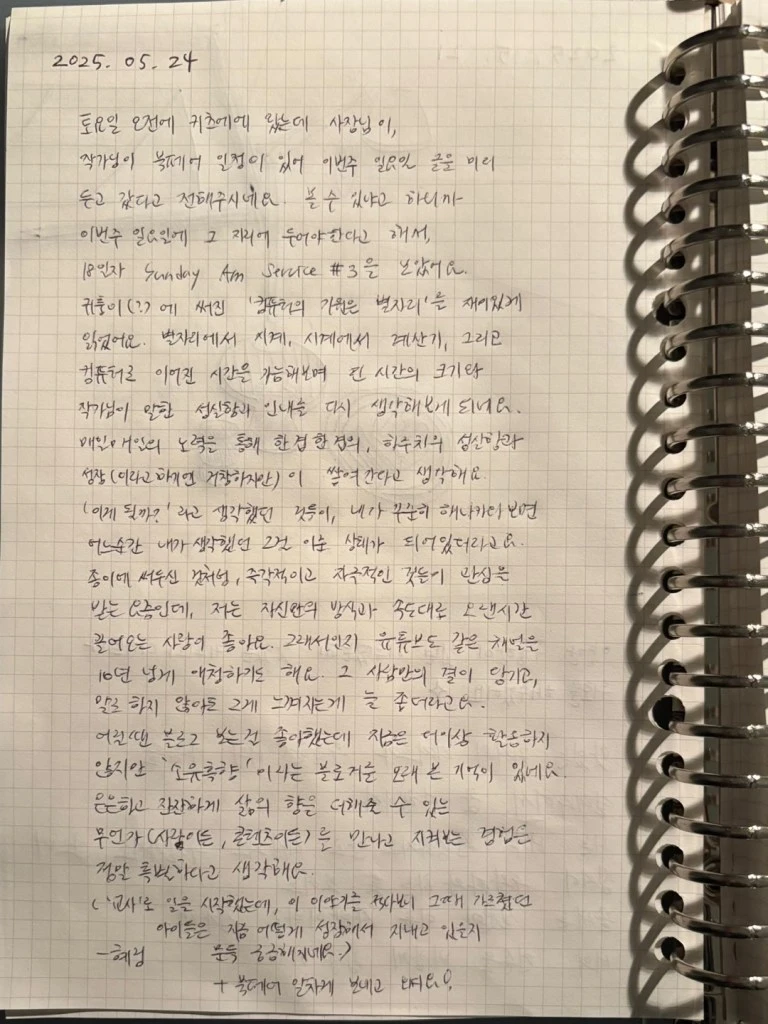 2025. 05. 24
토요일 오전에 귀츠에에 왔는데 사장님이,
작가님이 북페어 일정이 있어 이번주 일요일 글을 미리
두고 갔다고 전해주시네요. 볼 수 있냐고 하니까
이번주 일요일에 그 자리에 두어야한다고 해서,
18일자 Sunday Am Service #3을 보았어요.
귀퉁이(?)에 써진 '컴퓨터의 기원은 별자리'를 재미있게
읽었어요. 별자리에서 시계, 시계에서 계산기, 그리고
컴퓨터로 이어진 시간을 가늠해보며 긴 시간의 크기와
작가님이 말한 성실함과 인내를 다시 생각해보게 되네요.
매일매일의 노력을 통해 한겹한겹의, 하루치의 성실함과
성장(이라고하기엔 거창하지만)이 쌓여간다고 생각해요.
('이게 될까?'라고 생각했던 것들이, 내가 꾸준히 해나가다보면
어느순간 내가 생각했던 그걸 이룬 상태가 되어있더라고요.
종이에 써두신 것처럼, 즉각적이고 자극적인 것들이 관심을
받는 요즘인데, 저는 자신만의 방식과 속도대로 오랜시간
끌어오는 사람이 좋아요. 그래서인지 유튜브도 같은 채널을
10년 넘게 애청하기도 해요. 그 사람만의 결이 담기고,
말로 하지 않아도 그게 느껴지는게 늘 좋더라고요.
어릴땐 블로그 보는걸 좋아했는데 지금은 더이상 활동하지
않지만 '소유흑향'이라는 블로거를 오래 본 기억이 있네요.
은은하고 잔잔하게 삶의 향을 더해줄 수 있는
무언가(사람이든, 콘텐츠이든)를 만나고 지켜보는 경험은
정말 특별하다고 생각해요.
('교사'로 일을 시작했는데, 이 이야기를 적다보니 그때 가르쳤던
아이들은 지금 어떻게 성장해서 지내고 있을지
-혜정 문득 궁금해지네요.)
+ 북페어 알차게 보내고 오세요!